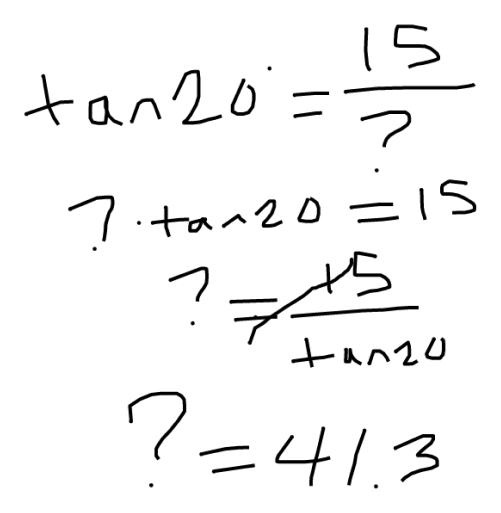 tan20° = 15/?
? · tan20 = 15
? = 15/tan20
? = 41.3